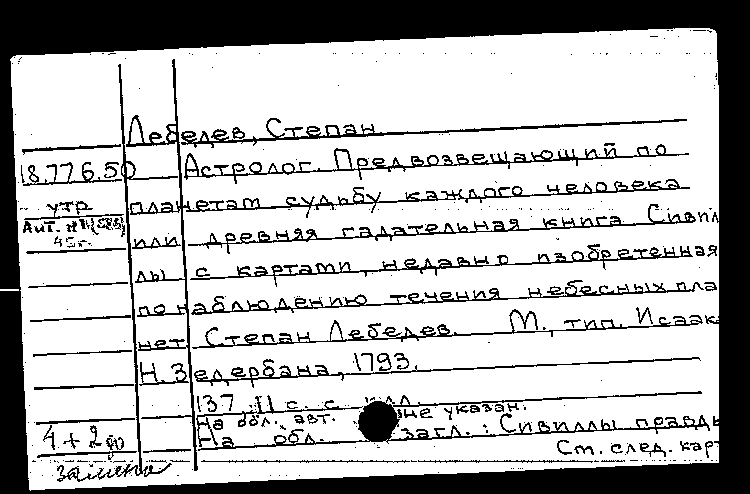 Лебедев, Степан
18.776.50 Астролог. Предвозвещающий по
утр планетам судьбу каждого человека
Акт. №11(588) или древняя гадательная книга Сивил
45г.
лы с картами, недавно изобретенная
по наблюдению течения небесных пла
нет Степан Лебедев. М., тип. Исаак
Н. Зедербана, 1793.
137, II с. с илл.
На обл. авт. не указан.
4+2 На обл. загл.: Сивиллы правды
См. след. карт
замена